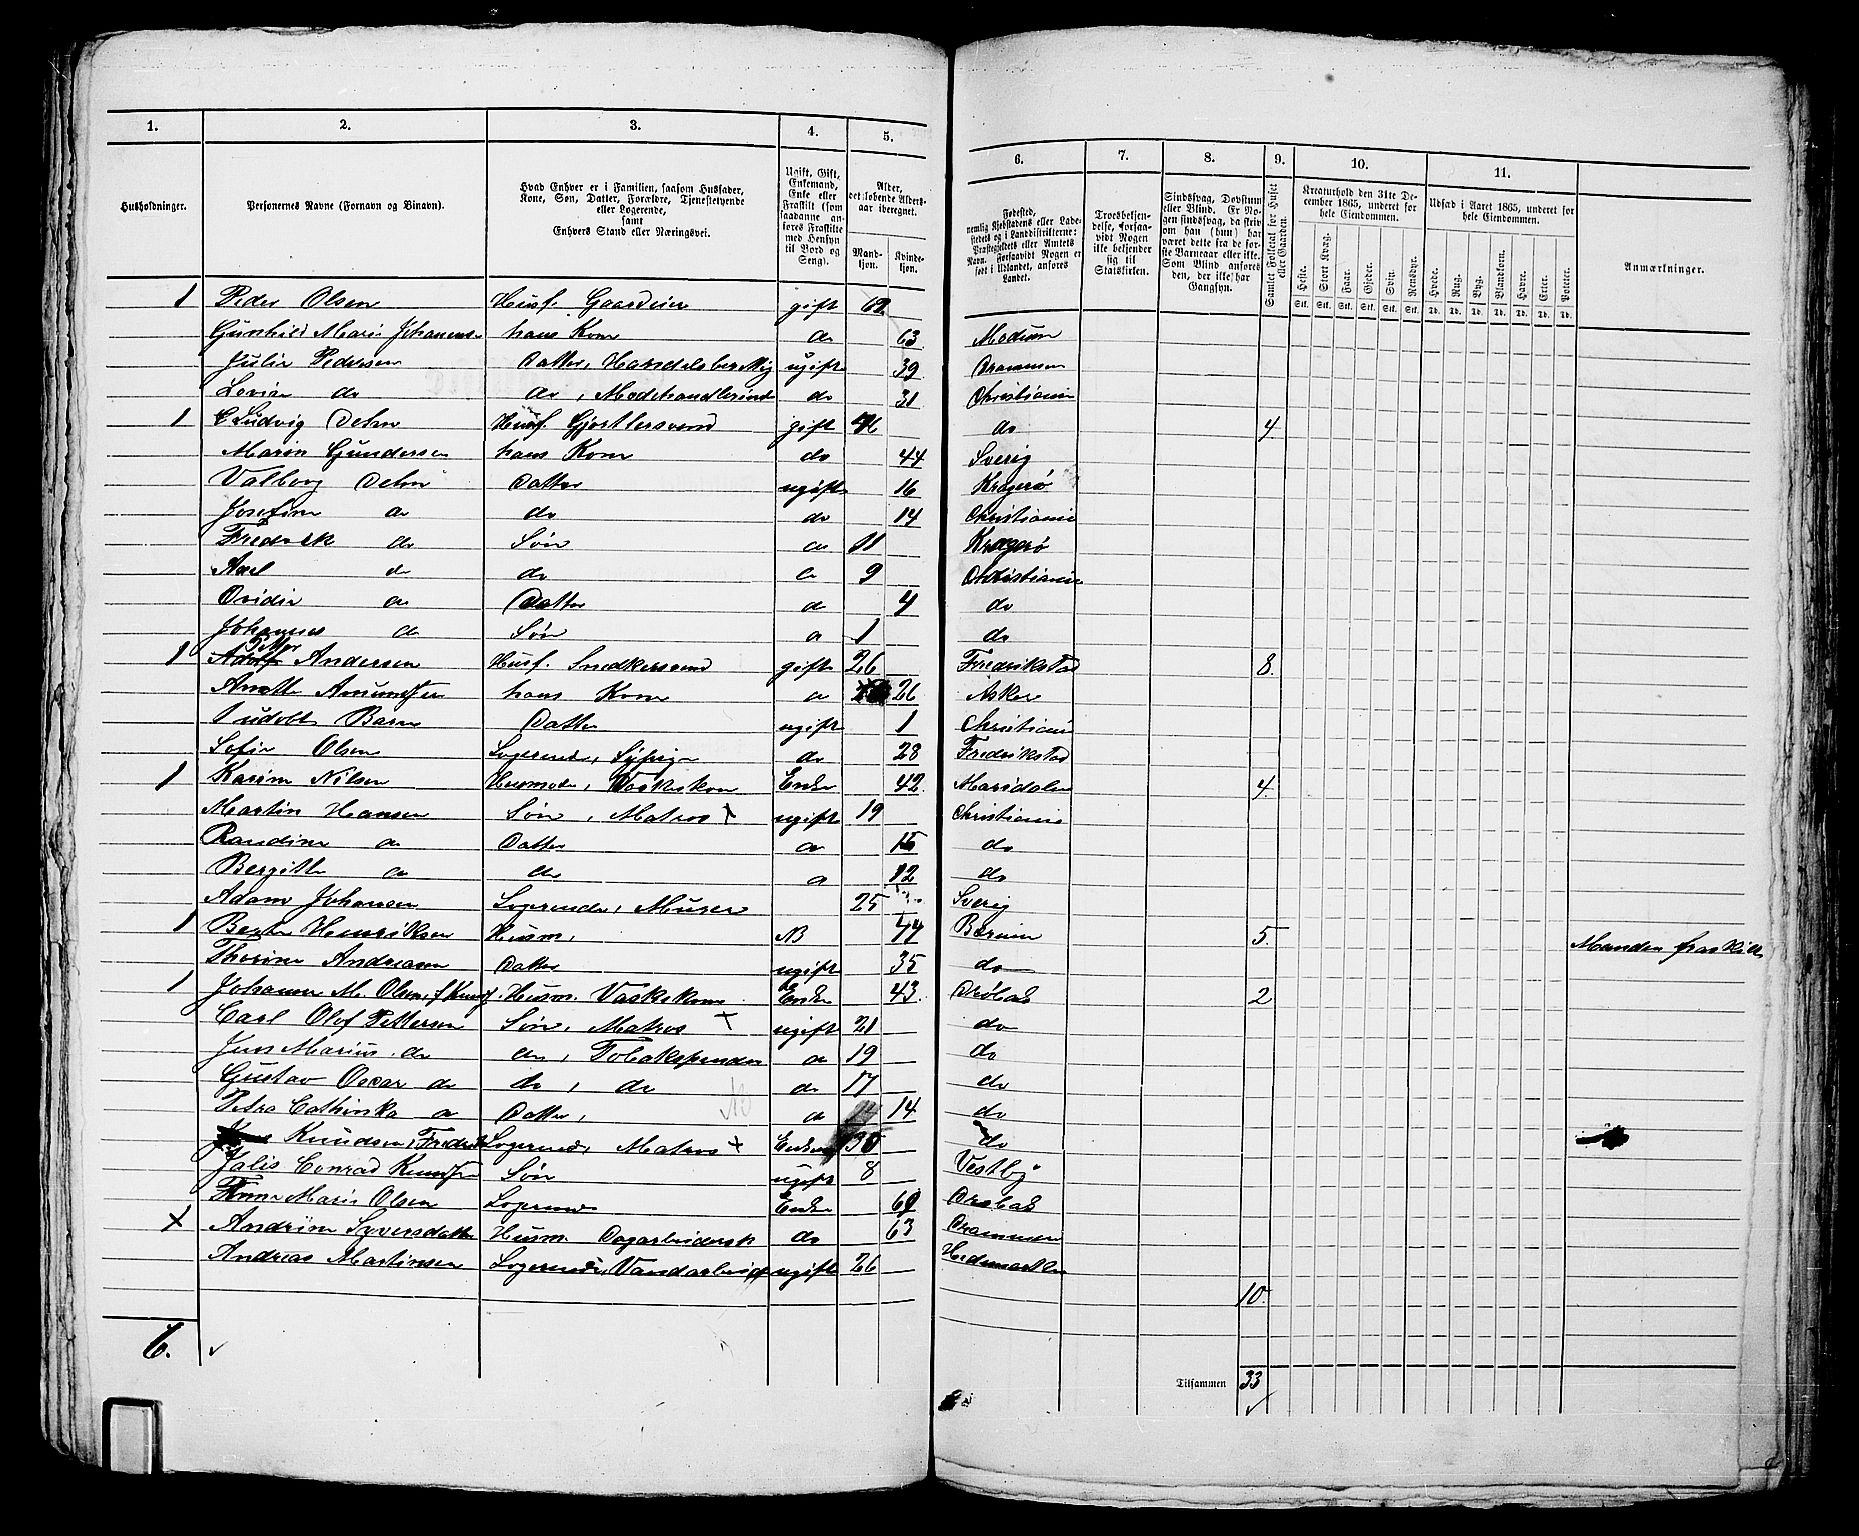 1. 2. 3. 4. 5. 6. 7. 8. 9. 10. 11.
Husholdninger.
Personernes Navne (Fornavn og Binavn).
Hvad Enhver er i Familien, saasom Husfader,
Kone, Søn, Datter, Forældre, Tjenestetyende
eller Logerende,
samt
Enhvers Stand eller Næringsvei.
Ugift, Gift,
Enkemand,
Enke eller
Fraskilt (som
saadanne an-
føres Fraskilte
med Hensyn
til Bord og
Seng).
Alder,
det løbende Alders-
aar iberegnet.
Mand-
kjøn.
Kvinde-
kjøn.
Fødested,
nemlig Kjøbstadens eller Lade-
stedets og i Landdistrikterne:
Præstegjeldets eller Amtets
Navn. Forsaavidt Nogen er
født i Udlandet, anføres
Landet.
Troesbekjen-
delse, forsaa-
vidt Nogen
ikke bekjender
sig til
Statskirken.
Sindssvag, Døvstum
eller Blind. Er No-
gen sindssvag, da skriv
om han (hun) har
været dette fra de før-
ste Barneaar eller ikke.
Som Blind anføres
den, der ikke har
Gangsyn.
Samlet Folketal for Huset
eller Gaarden.
Kreaturhold den 31te De-
cember 1865, underet for
hele Eiendommen.
Heste. Stort Kvæg. Faar. Gjeder. Svin. Rensdyr.
Stk. Stk. Stk. Stk. Stk. Stk.
Udsæd i Aaret 1865, underet for
hele Eiendommen.
Hvede. Rug. Byg. Blandkorn. Havre. Erter. Poteter.
Td. Td. Td. Td. Td. Td. Td.
Anmærkninger.
1 Peder Olsen Husf. Gaardeier gift
Gunhild Marie Johannesen hans Kone do 63 Modum
Julie Pedersen Datter, Handelsberettig ugift 39 Drammen
Lovise do do, Modehandlerinde do 31 Christiania
1 C Ludvig Dehn Husf. Gjørtlersvend gift do 4
Maren Gundersen hans Kone do 44 Sverig
Valborg Dehn Datter ugift 16 Kragerø
Josefine do do do 14 Christiania
Fredrik do Søn do 11 Kragerø
Axel do do do 9 Christiania
Ovidia do Datter do 4 do
Johannes do Søn do 1 do
1 Andersen Husf. Snedkersvend gift 26 Fredrikstad 8.
Anette Amundsen hans Kone do 26 Asker
Datter ugift 1 Christiania
Sofie Olsen Logerende, Sypige do 28 Fredrikstad
1 Karine Nilsen Husmoder, Vaskekone Enke 42 Maridalen 4.
Martin Hansen Søn, Matros x ugift 19 Christiania
Randine do Datter do 15 do
Bergitte do do do 12 do
Adam Johansen Logerende, Murer 25 Sverig
1 Henriksen Husm, NB Bærum 5. Manden fraskilt
Thorine Andreasen Datter ugift 35 do
1 Johanne M. Olsen, f Knudsen. Husm. Vaskekone Enke 43. Drøbak 2
Carl Olof Pettersen Søn, Matros x ugift 21 do
Jens Marius do do, Tobakspinder do 19 do
Gustav Oscar do do, do do 17 do
Petra Cathinka do Datter, do 14 do
Knudsen, Fredrik Logerende, Matros x Enkem do
Julis Conrad Knudsen Søn ugift 8 Vestby
Anne Marie Olsen Logerende Enke Drøbak
x Andrine Syversdatter Husm. Dagarbeidersk do 63 Drammen
Andreas Martinsen Logerende, Vandarbeid ugift 26 Hedemarken
10.
6. ✓
Tilsammen 33
✓